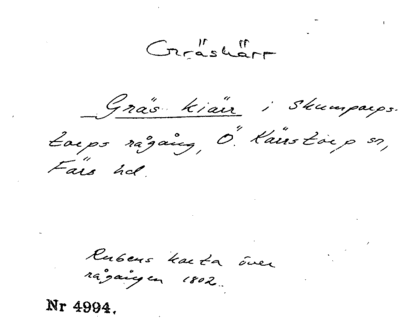 Gräskärr
Gräs kiärr i Skumparps-
torps rågång, Ö. Kärrstorp sn,
Färs hd.
Rubens karta över
rågången 1802.
Nr 4994.